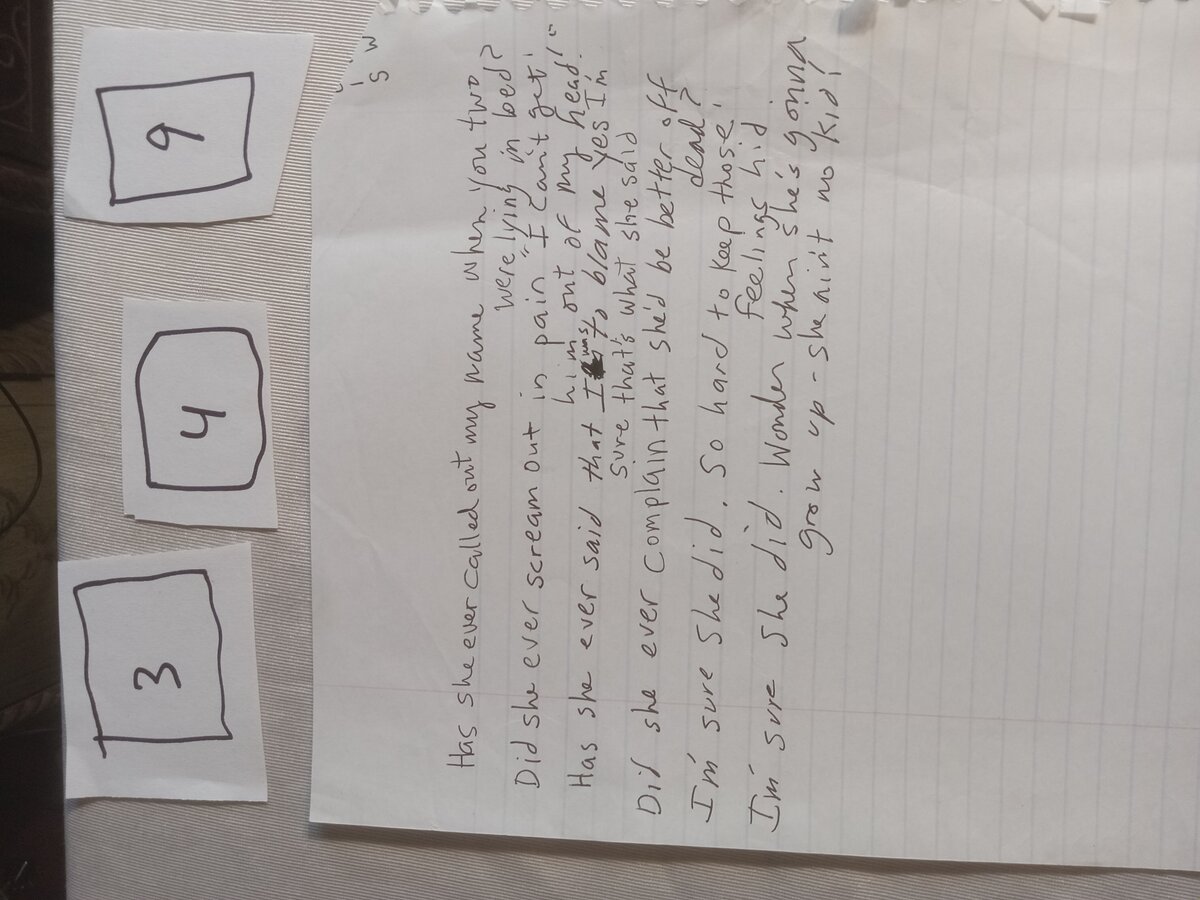 3 4 9
Has she ever called out my name when you two
were lying in bed?
Did she ever scream out in pain "I can't get
him out of my head!"
Has she ever said that I was to blame yes I'm
sure that's what she said
Did she ever complain that she'd be better off
dead?
I'm sure she did. So hard to keep those
feelings hid
I'm sure she did. Wonder when she's gonna
grow up - she ain't no kid!